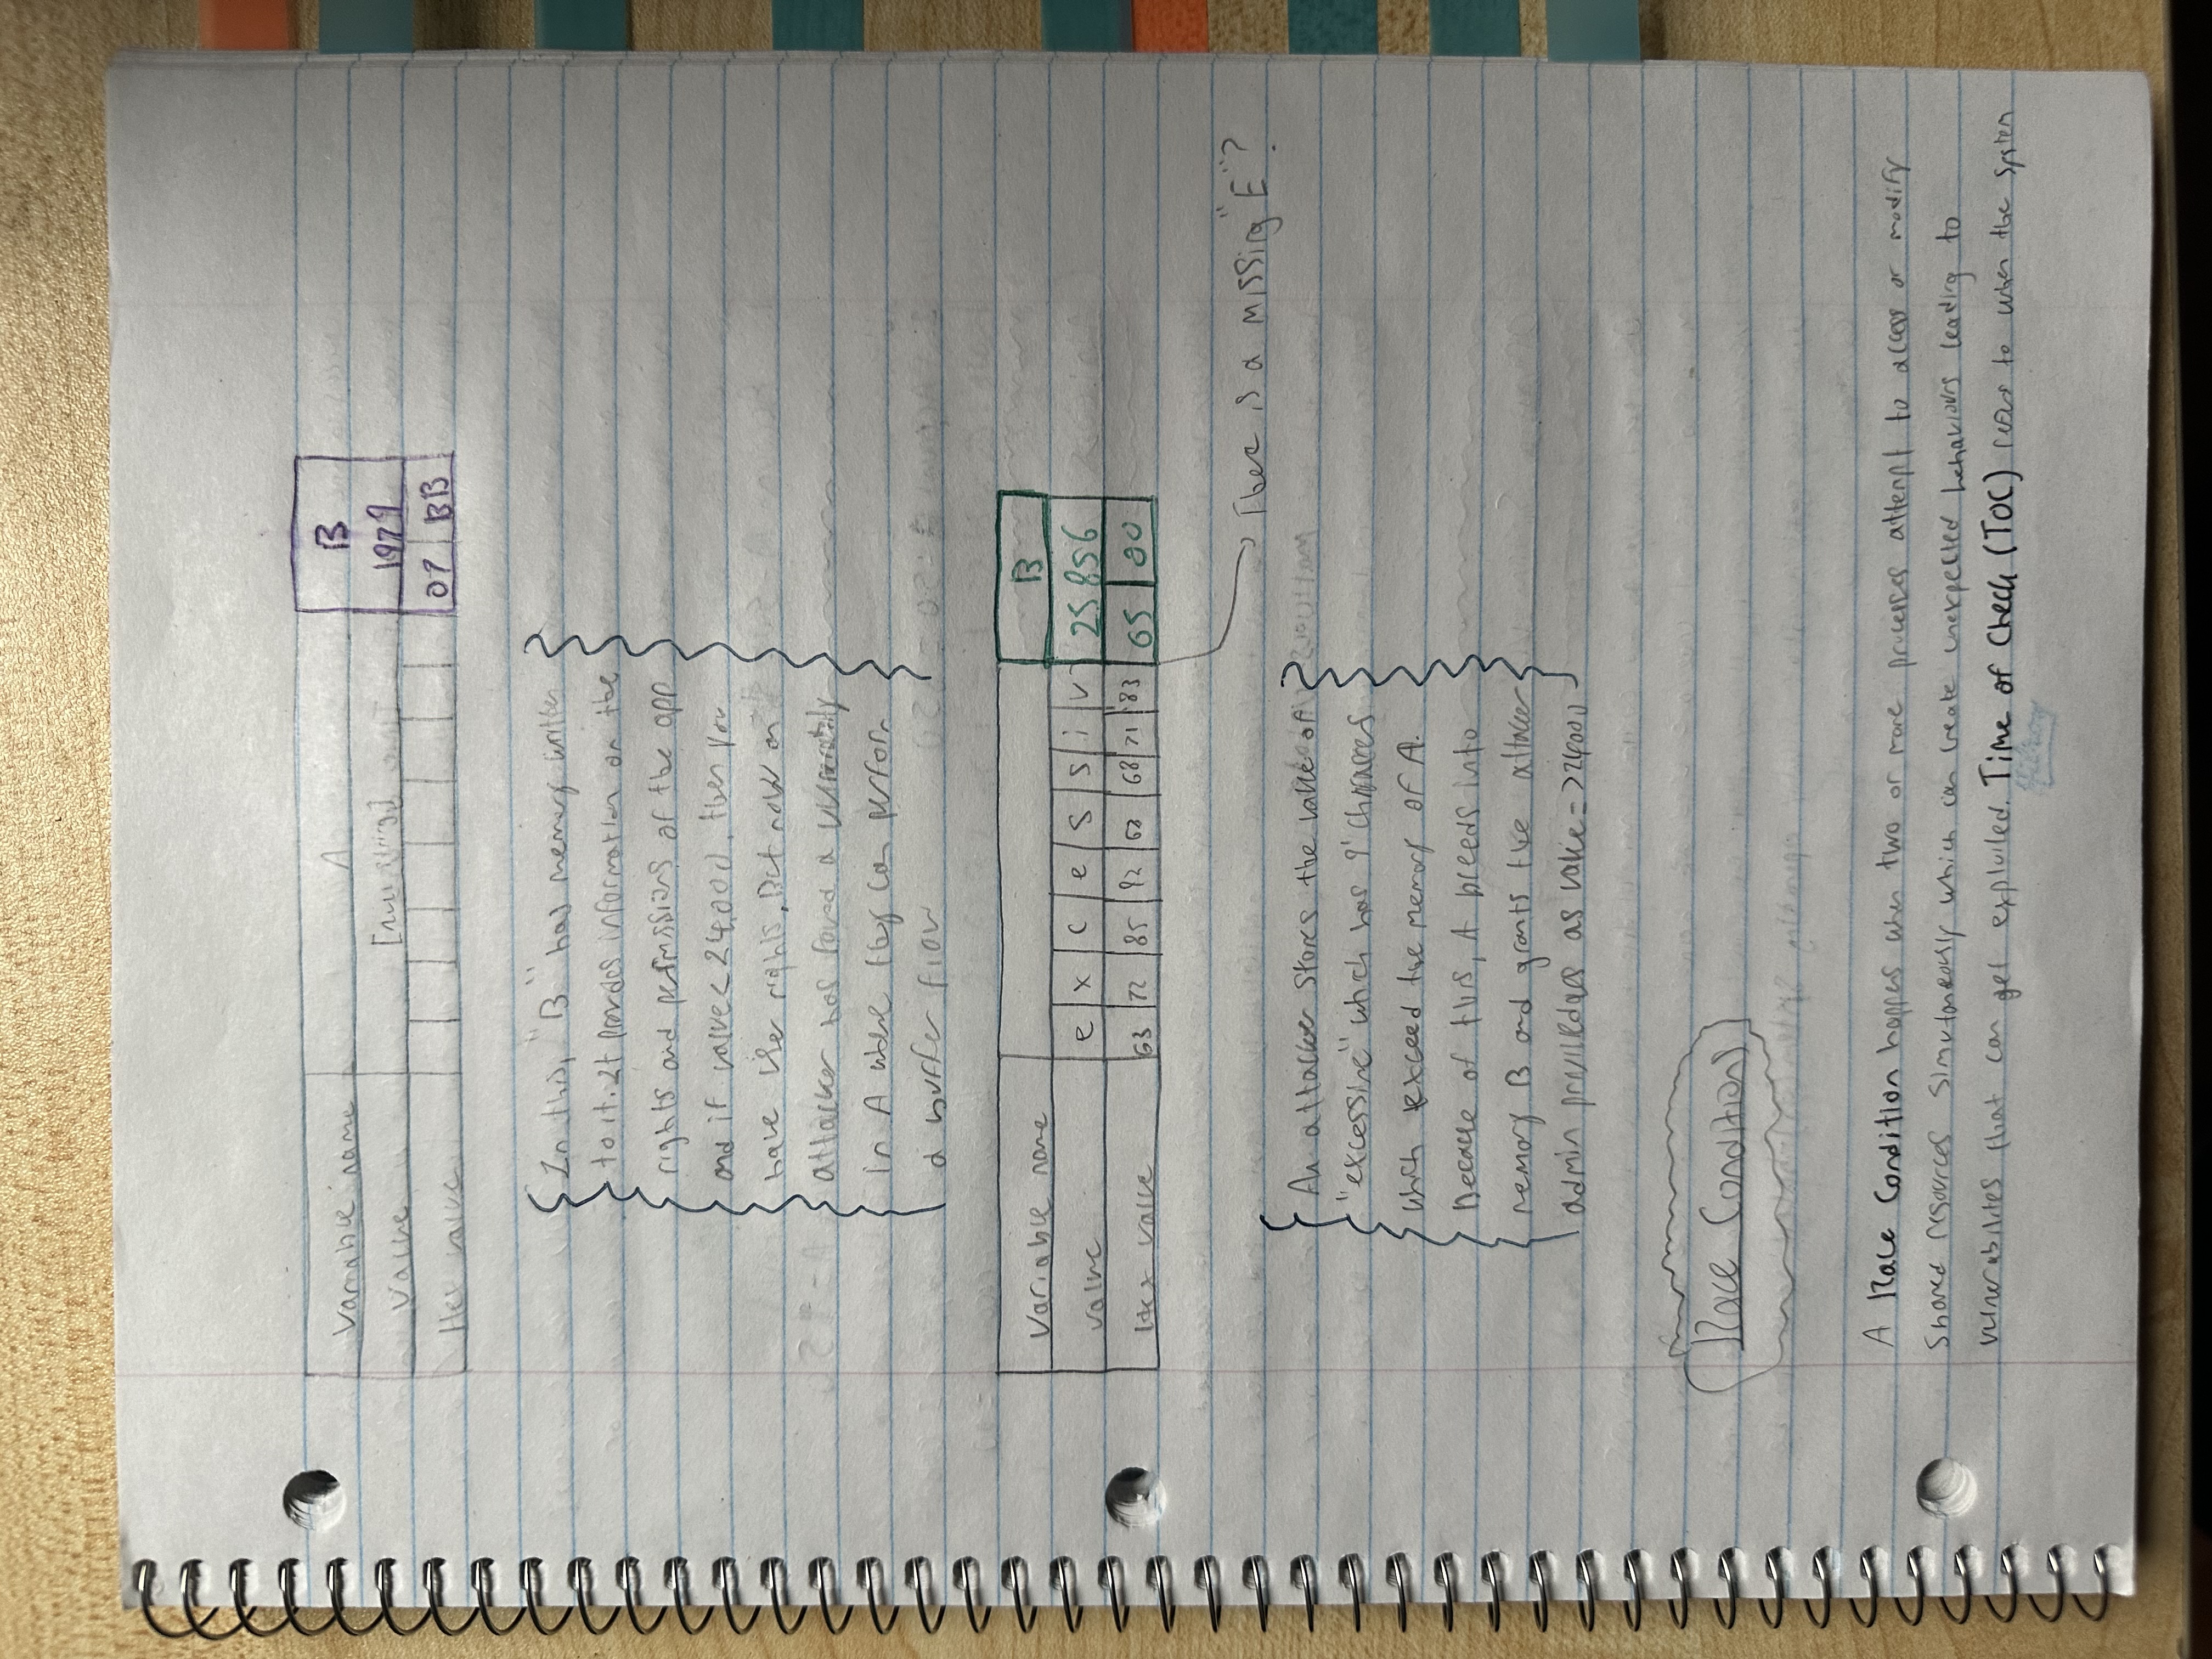 Variable name A B
Value [null string] 1979
Hex value 07 BB
In this, "B" has memory written
to it. It provides information on the
rights and permissions of the app
and if value < 24,000, then you
have user rights. But now an
attacker has found a
in A where they can perform
a buffer flow
Variable name B
value e x c e s s i v 25856
Hex value 63 72 85 92 68 68 71 83 65 00
There is a missing "E"?
An attacker stores the value of
"excessive" which has 9 characters
which exceed the memory of A.
Because of this, A bleeds into
memory B and grants the attacker
admin priviledges as value = >24000
Race Conditions
A Race Condition happens when two or more processes attempt to access or modify
shared resources simutaneously which can create unexpected behaviours leading to
vulnerabilites that can get exploited. Time of Check (TOC) refers to when the system